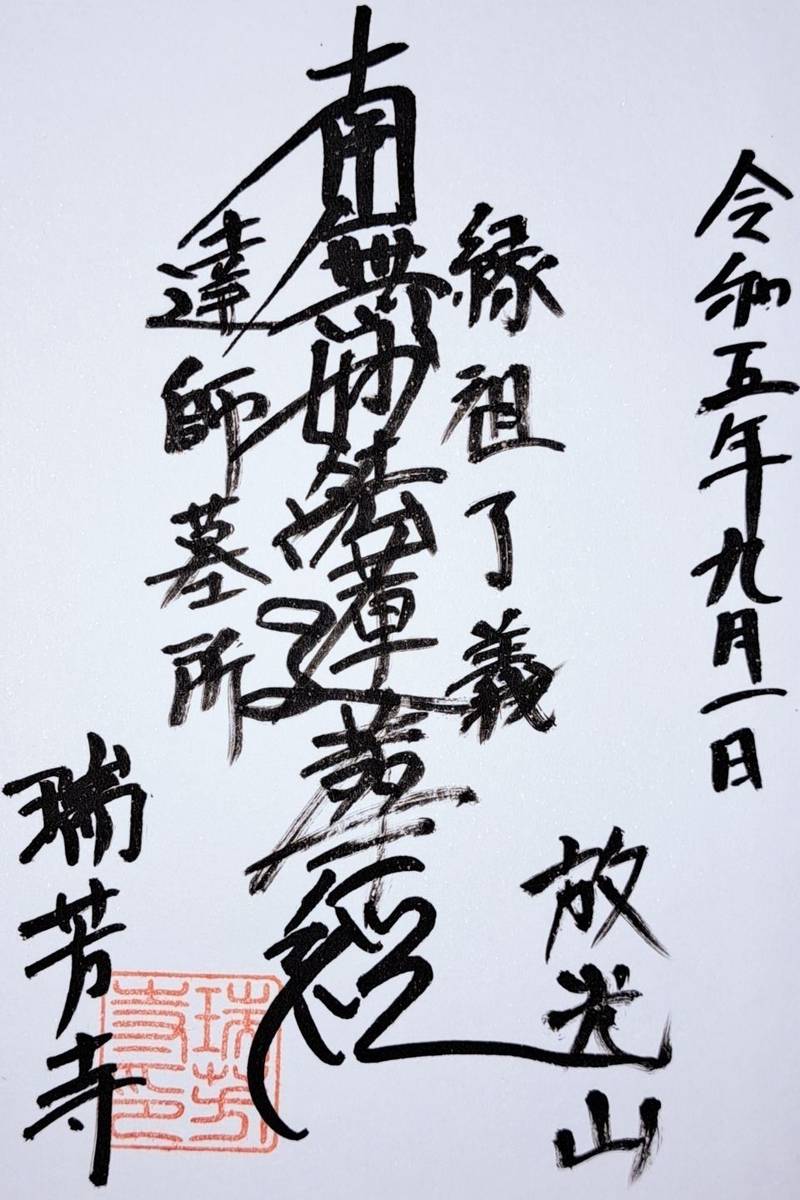 令和五年九月一日
放光山
縁祖了義
南無妙法蓮華経
達師墓所
瑞芳寺
瑞芳
寺印